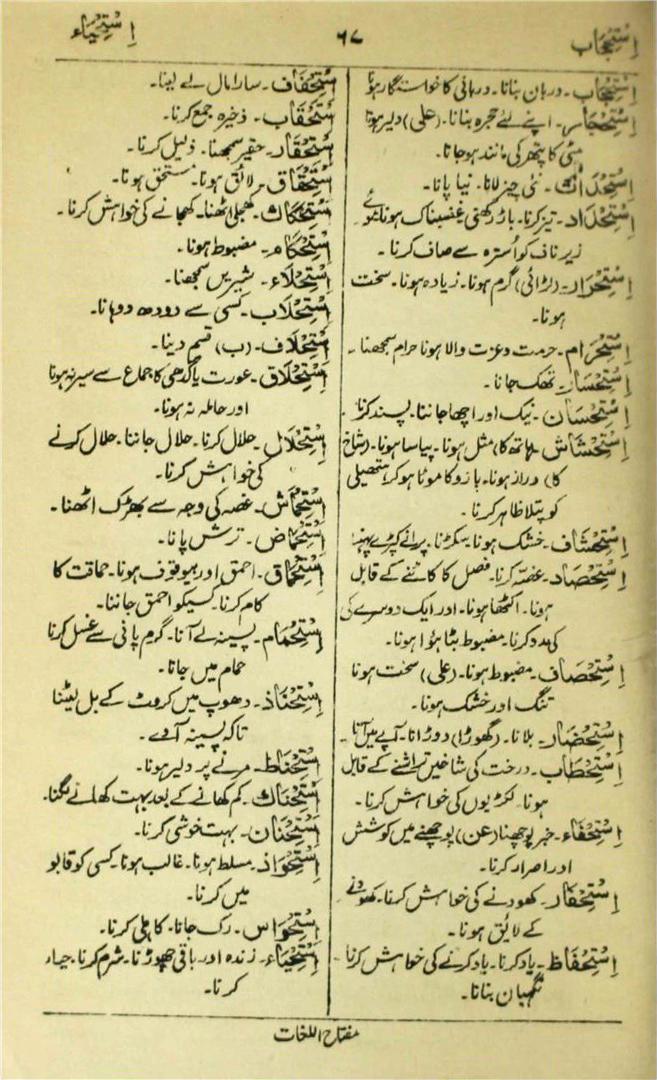 اِسْتِحْجَاب
۶۷
اِسْتِحْیَاء
اِسْتِحْجَاب۔ دربان بنانا۔ دربانی کا خواستگار ہونا
اِسْتِحْجَار۔ اپنے لئے حجرہ بنانا۔ (علی) دلیر ہونا
مٹی کا پتھر کی مانند ہو جانا۔
اِسْتِحْدَاث۔ نئی چیز لانا۔ نیا پانا۔
اِسْتِحْدَاد۔ تیز کرنا۔ باڑ رکھنی غضبناک ہونا موئے
زیر ناف کو اُسترہ سے صاف کرنا۔
اِسْتِحْرَار۔ (لڑائی) گرم ہونا۔ زیادہ ہونا۔ سخت
ہونا۔
اِسْتِحْرَام۔ حرمت و عزت والا ہونا حرام سمجھنا۔
اِسْتِحْسَار۔ تھک جانا۔
اِسْتِحْسَان۔ نیک اور اچھا جاننا۔ پسند کرنا۔
اِسْتِحْشَاش۔ ہاتھ کا) مثل ہونا۔ پیاسا ہونا۔ (شاخ
کا) دراز ہونا۔ بازو کا موٹا ہو کر ہتھیلی
کو پتلا ظاہر کرنا۔
اِسْتِحْشَاف۔ خشک ہونا۔ سکڑنا۔ پرانے کپڑے پہننا
اِسْتِحْصَاد۔ غصّہ کرنا۔ فصل کا کاٹنے کے قابل
ہونا۔ اکٹھا ہونا۔ اور ایک دوسرے کی
مدد کرنا۔ مضبوط بٹا ہُوا ہونا۔
اِسْتِحْصَاف۔ مضبوط ہونا۔ (علی) سخت ہونا
تنگ اور خشک ہونا۔
اِسْتِحْضَار۔ بلانا۔ (گھوڑا) دوڑانا۔ آپے میں آنا۔
اِسْتِحْطَاب۔ درخت کی شاخیں تراشنے کے قابل
ہونا۔ لکڑیوں کی خواہش کرنا۔
اِسْتِحْفَاء۔ خبر پوچھنا (عن) پوچھنے میں کوشش
اور اصرار کرنا۔
اِسْتِحْفَار۔ کھودنے کی خواہش کرنا۔ کھودنے
کے لائق ہونا۔
اِسْتِحْفَاظ۔ یاد کرنا۔ یاد کرنے کی خواہش کرنا
نگہبان بنانا۔
اِسْتِحْفَاف۔ سارا مال لے لینا۔
اِسْتِحْقَاب۔ ذخیرہ جمع کرنا۔
اِسْتِحْقَار۔ حقیر سمجھنا۔ ذلیل کرنا۔
اِسْتِحْقَاق۔ لائق ہونا۔ مستحق ہونا۔
اِسْتِحْکَاک۔ کھجلی اٹھنا۔ کھجانے کی خواہش کرنا۔
اِسْتِحْکَام۔ مضبوط ہونا۔
اِسْتِحْلَاء۔ شیریں سمجھنا۔
اِسْتِحْلَاب۔ کسی سے دودھ دوہانا۔
اِسْتِحْلَاف۔ (ب) قسم دینا۔
اِسْتِحْلَاق۔ عورت یا گدھی کا جماع سے سیر نہ ہونا
اور حاملہ نہ ہونا۔
اِسْتِحْلَال۔ حلال کرنا۔ حلال جاننا۔ حلال کرنے
کی خواہش کرنا۔
اِسْتِحْمَاش۔ غصہ کی وجہ سے بھڑک اٹھنا۔
اِسْتِحْمَاض۔ ترش پانا۔
اِسْتِحْمَاق۔ احمق اور بیوقوف ہونا۔ حماقت کا
کام کرنا۔ کسیکو احمق جاننا۔
اِسْتِحْمَام۔ پسینہ لے آنا۔ گرم پانی سے غسل کرنا
حمام میں جانا۔
اِسْتِحْنَاذ۔ دھوپ میں کروٹ کے بل لیٹنا
تاکہ پسینہ آوے۔
اِسْتِحْنَاط۔ مرنے پر دلیر ہونا۔
اِسْتِحْنَاک۔ کم کھانے کے بعد بہت کھانے لگنا۔
اِسْتِحْنَان۔ بہت خوشی کرنا۔
اِسْتِحْوَاذ۔ مسلط ہونا۔ غالب ہونا۔ کسی کو قابو
میں کرنا۔
اِسْتِحْوَاس۔ رک جانا۔ کاہلی کرنا۔
اِسْتِحْیَاء۔ زندہ اور باقی چھوڑنا۔ شرم کرنا۔ حیاء
کرنا۔
مفتاح اللغات